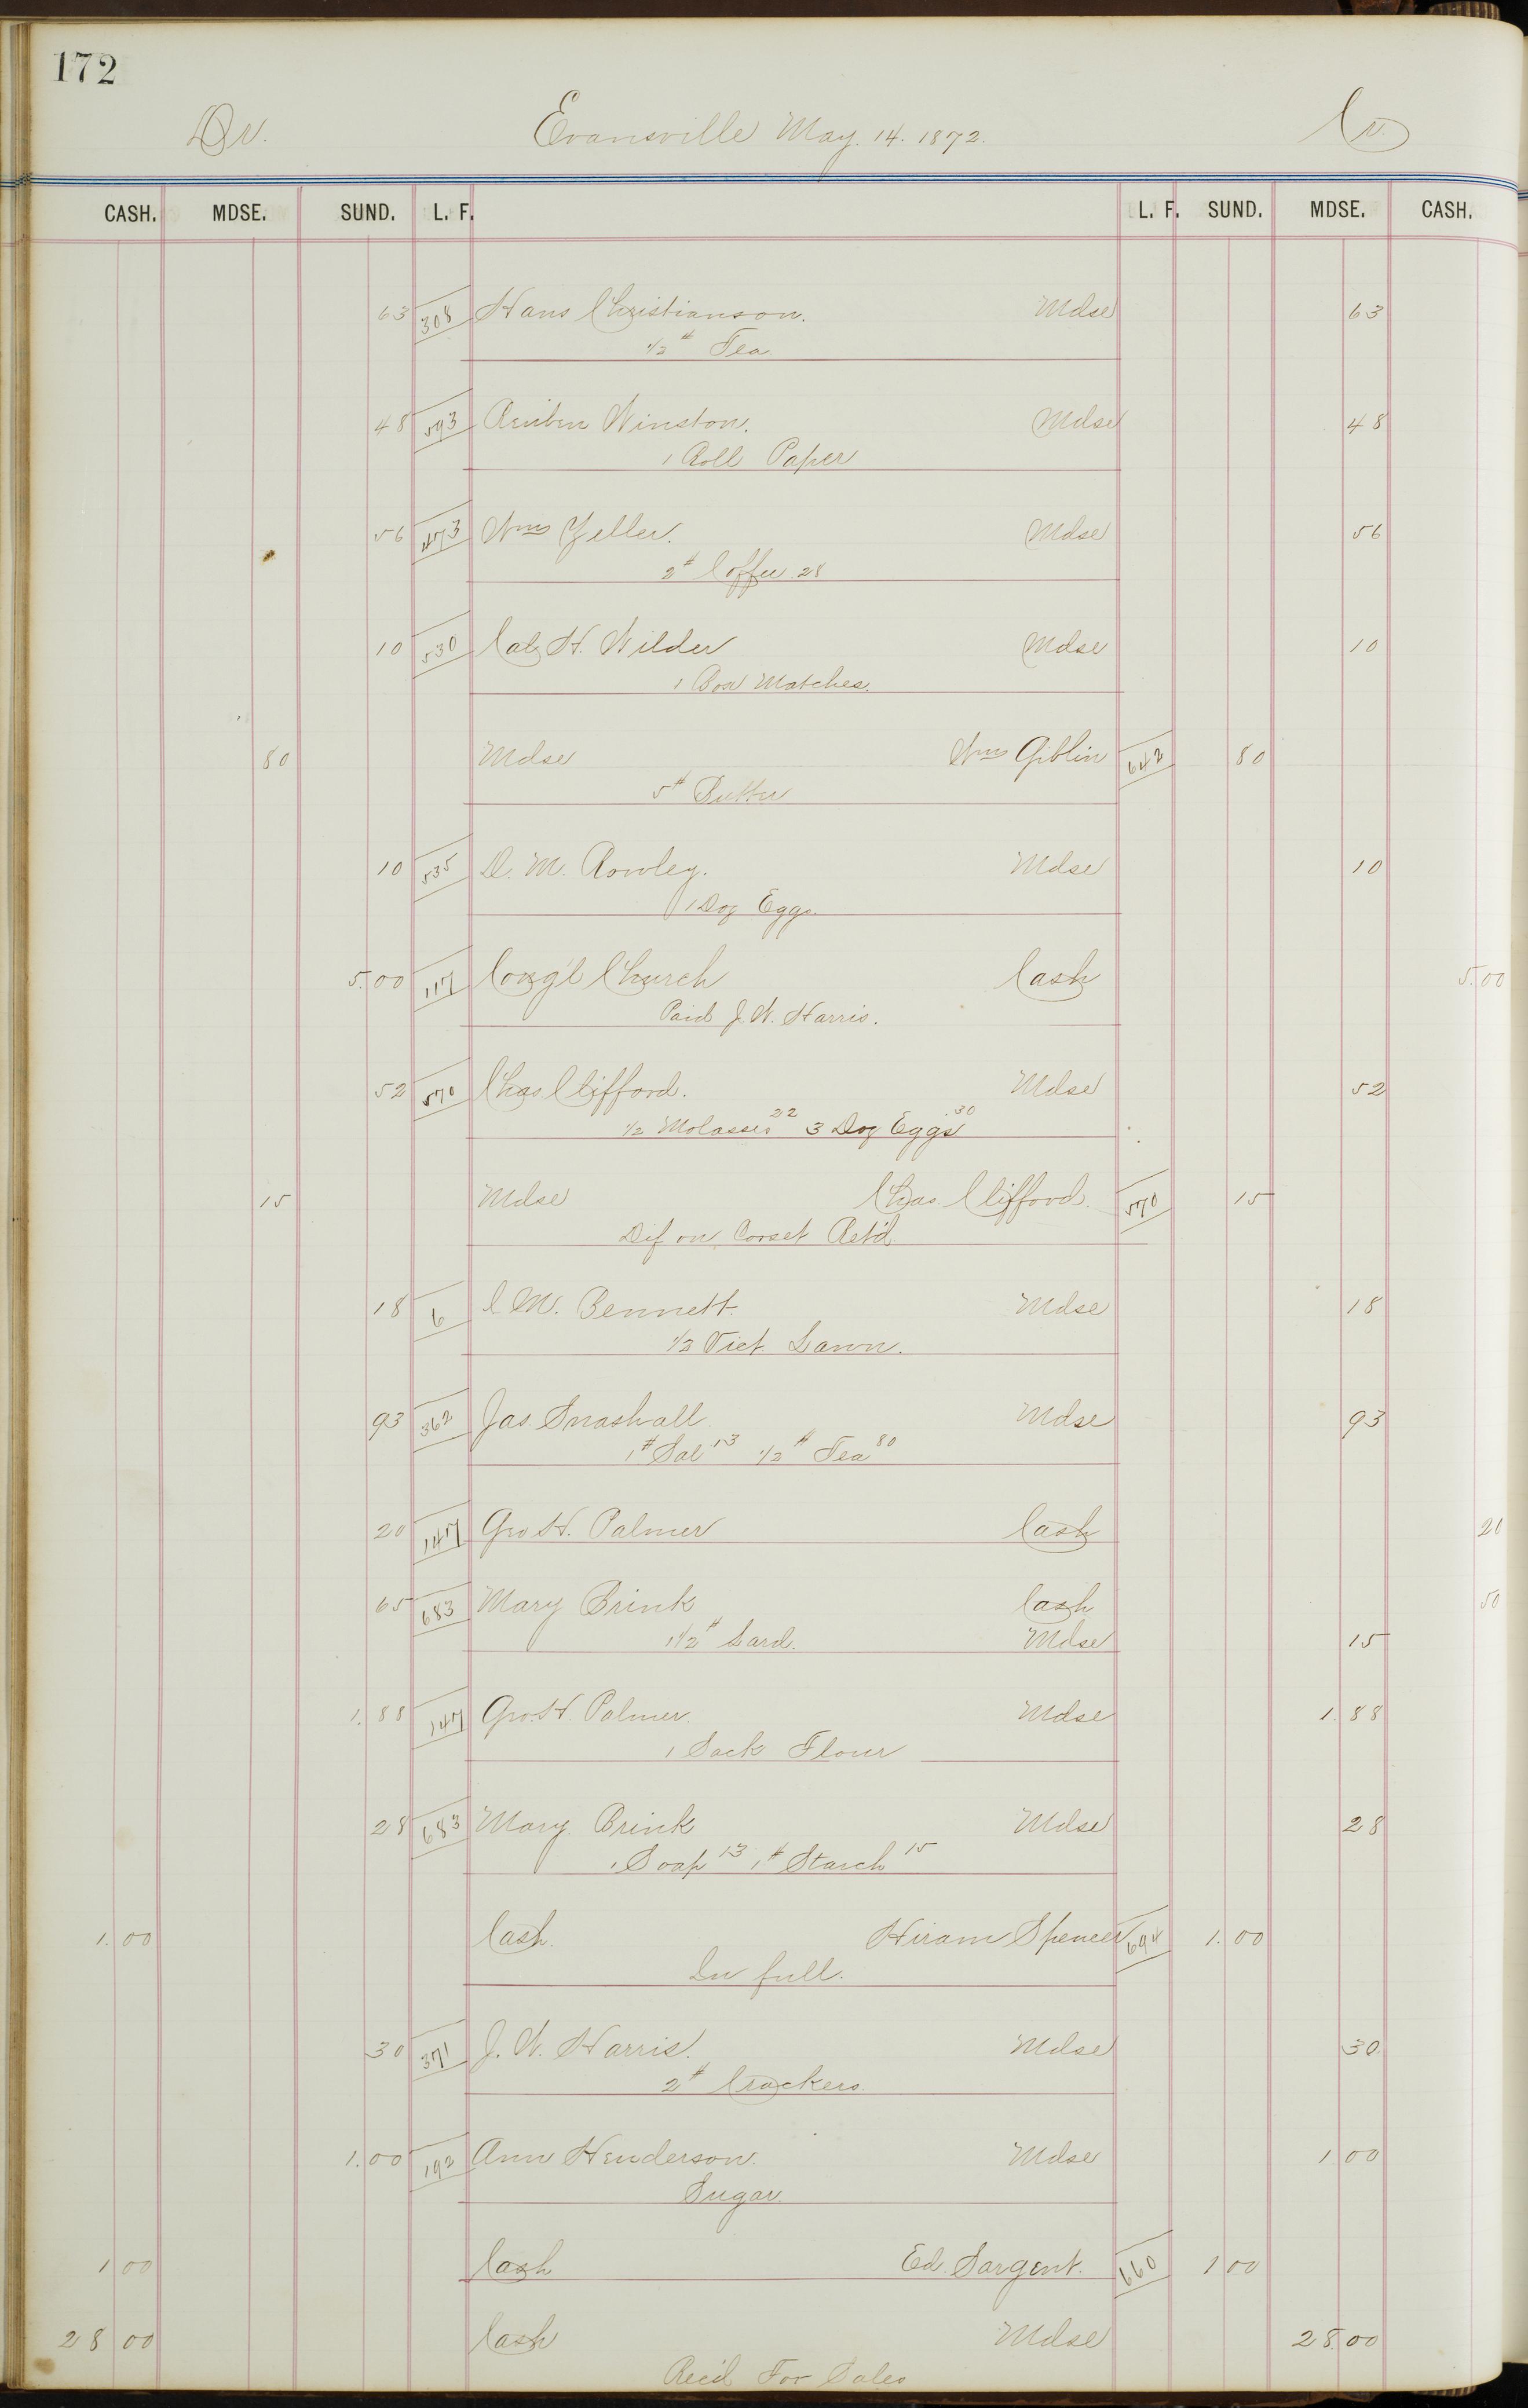 172
Dr. Evansville May. 14. 1872. Cr.
CASH. MDSE. SUND. L. F. L. F. SUND. MDSE. CASH.
63 308 Hans Christianson. Mdse 63
1/2 # Tea
48 593 Reuben Winston. Mdse 48
1 Roll Paper
56 473 Wm Zeller. Mdse 56
2 # Coffee 28
10 530 Cal H. Wilder Mdse 10
1 Box Matches.
80 Mdse Wm Giblin 642 80
5 # Butter
10 535 D. M. Rowley. Mdse 10
1 Doz Eggs.
5.00 117 Cong'l Church Cash 5.00
Paid J. W. Harris.
52 570 Chas Clifford. Mdse 52
1/2 Molasses 22 3 Doz Eggs 30
15 Mdse Chas. Clifford. 570 15
Dif on Corset Ret'd
18 6 C M. Bennett. Mdse 18
1/2 Vict. Lawn.
93 362 Jas. Snashall Mdse 93
1 # Sal 13 1/2 # Tea 80
20 147 Geo H. Palmer Cash 20
65 683 Mary Brink Cash 50
1 1/2 # Lard. Mdse 15
1.88 147 Geo. H. Palmer. Mdse 1.88
1 Sack Flour
28 683 Mary Brink Mdse 28
1 Soap 13 1 # Starch 15
1.00 Cash Hiram Spencer 694 1.00
In full.
30 371 J. W. Harris. Mdse 30
2 # Crackers
1.00 192 Ann Henderson. Mdse 1 00
Sugar
1 00 Cash Ed. Sargent. 660 1 00
28 00 Cash Mdse 28.00
Rec'd For Sales